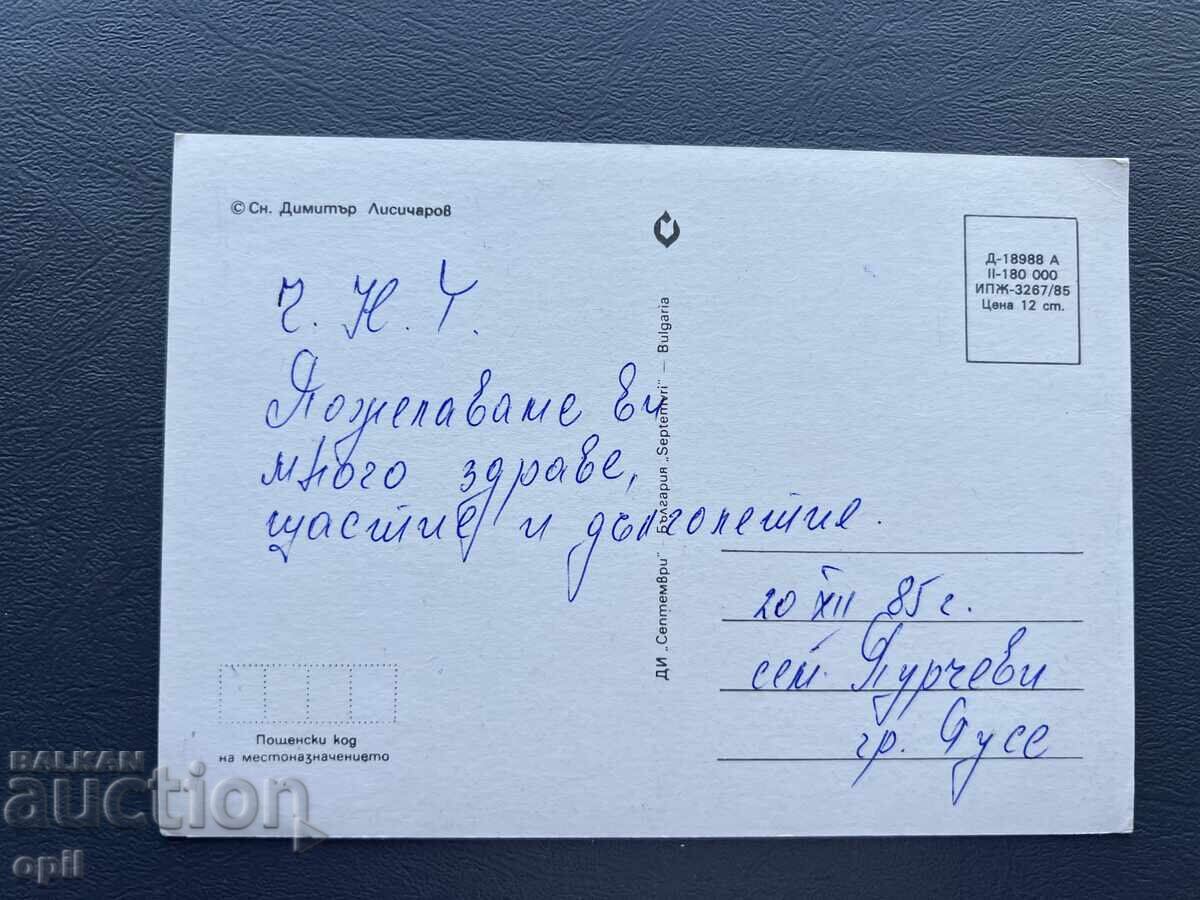 © Сн. Димитър Лисичаров
Ч. Н. Г.
Пожелаваме ви
много здраве,
щастие и дълголетие.
Пощенски код
на местоназначението
ДИ „Септември" България „Septemvri" — Bulgaria
Д-18988 А
II-180 000
ИПЖ-3267/85
Цена 12 ст.
20 XII 85 г.
сем. Пурчеви
гр. Русе
BALKAN
auction
opil